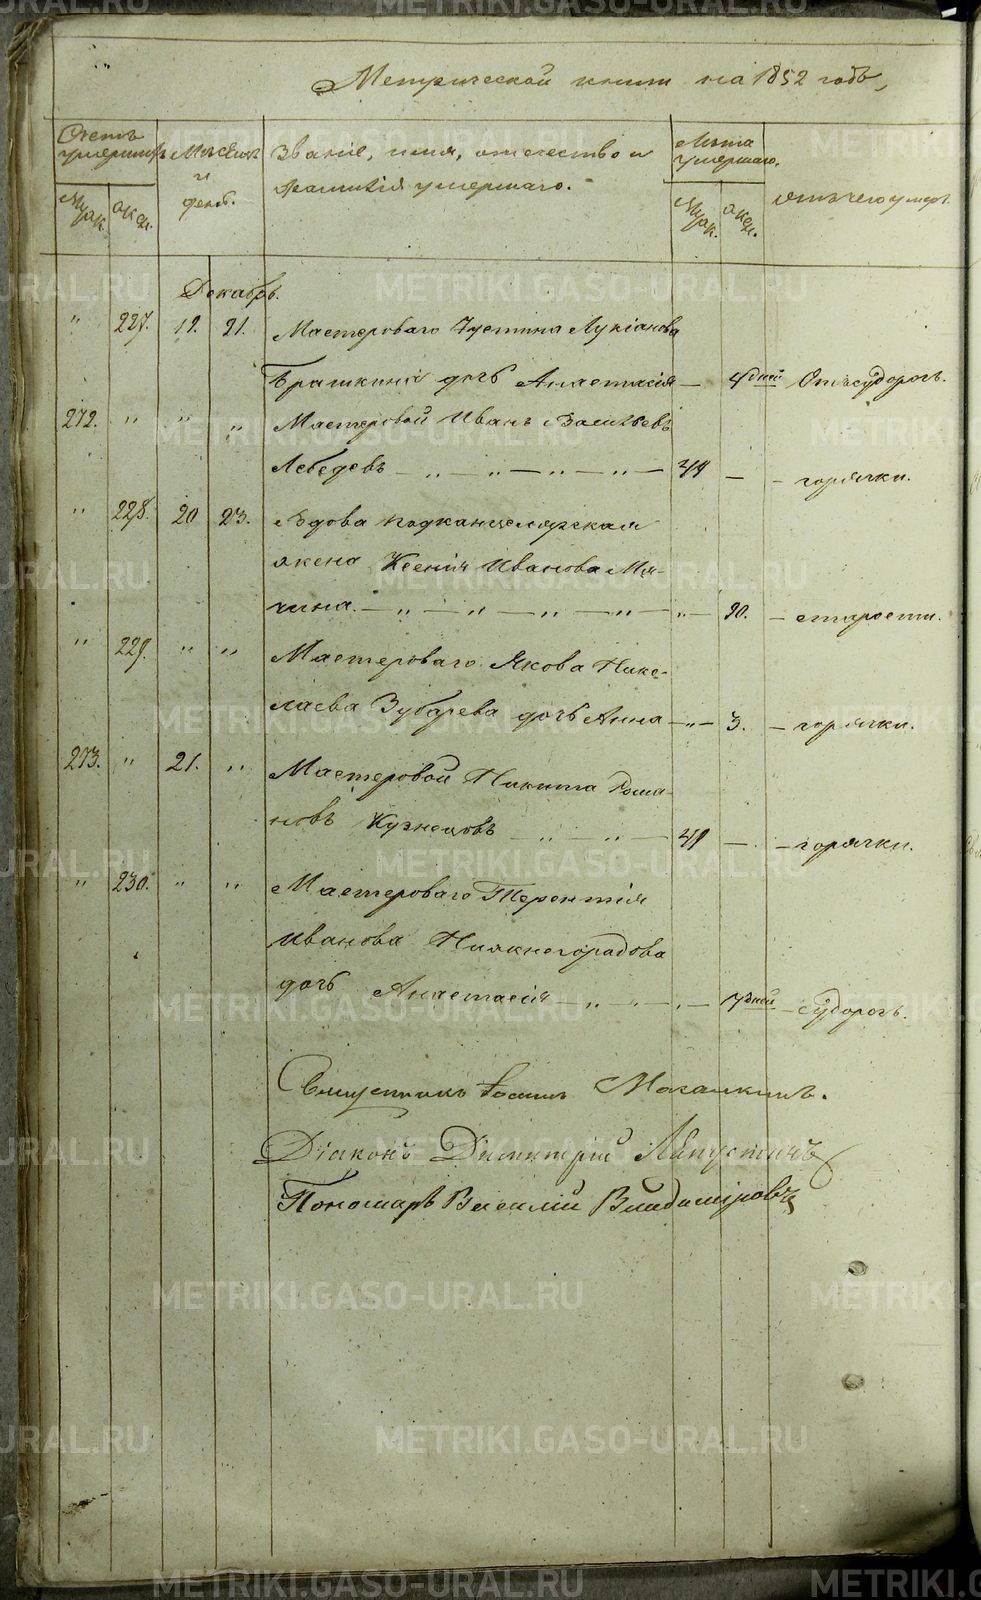 Метрической книги на 1852 годъ,
Счетъ умершихъ
Мѣсяцъ и день.
Званіе, имя, отчество и
фамилія умершаго.
Лѣта умершаго.
Отъ чего умеръ
Муж. Жен.
Муж. Жен.
Декабрь.
" 227. 19. 21. Мастероваго Устина Лукіанова
Брашкина дочь Анастасія — 4 дней Отъ судорогъ.
272. " " " Мастеровой Иванъ Васильевъ
Лебедевъ — " — " — " — " — — - горячки.
" 228. 20 23. Вдова подканцелярская
жена Ксенія Иванова Мя-
чина. — " — " — " — " — " — 90. - старости.
" 229. " " Мастероваго Якова Нико-
лаева Зубарева дочь Анна — " — 3. - горячки.
273. " 21. " Мастеровой Никита Рома-
новъ Кузнецовъ — " — " — — - горячки.
" 230. " " Мастероваго Терентія
Иванова Нижнегородова
дочь Анастасія — " — " — 7 дней - судорогъ.
Священникъ
Діаконъ Димитрій Лапустинъ
Пономарь Василій Владиміровъ
METRIKI.GASO-URAL.RU